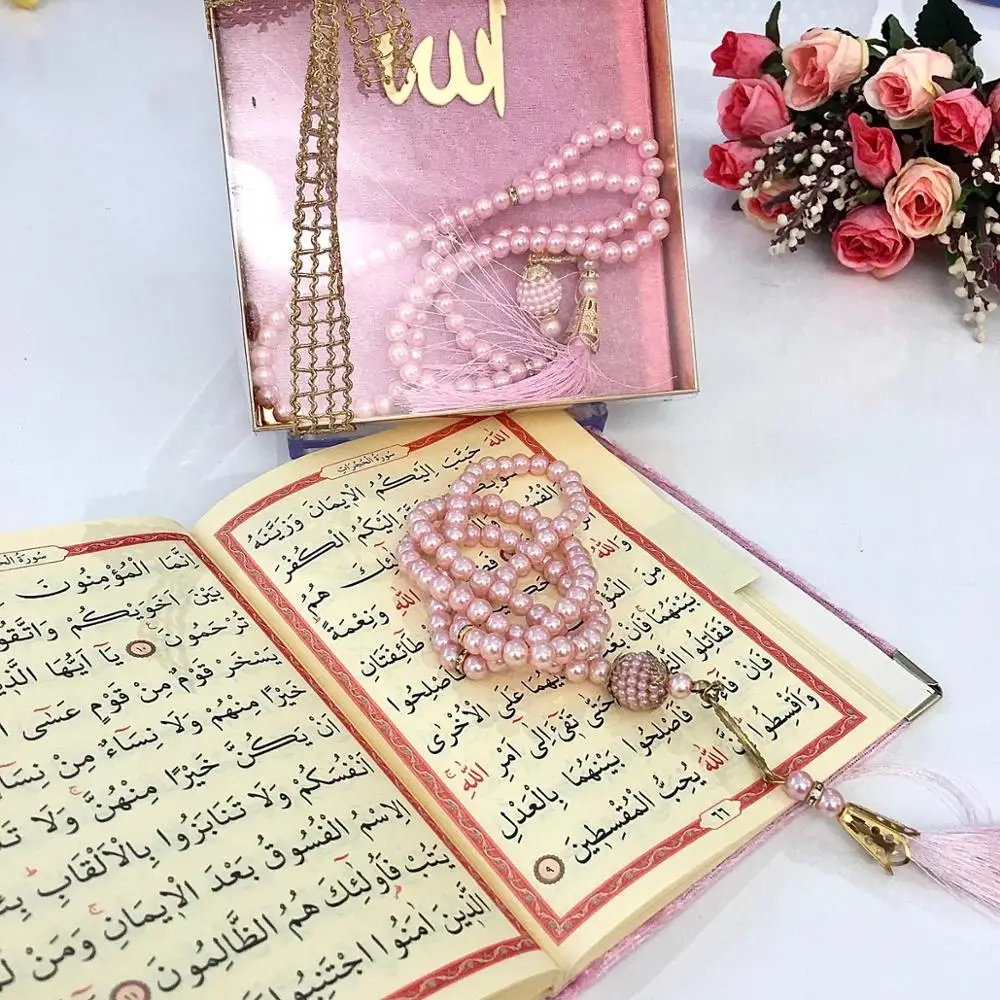 الله
سُورَةُ الْحُجُرَاتِ
اللّٰهَ حَبَّبَ اِلَيْكُمُ الْاِيمَانَ وَزَيَّنَهُ
اِلَيْكُمُ الْكُفْرَ
هُمُ
اللّٰهِ وَنِعْمَةً
وَاللّٰهُ طَٓائِفَتَانِ
مِنَ فَاَصْلِحُوا
بَيْنَهُمَا فَاِنْ عَلَى الْاُخْرٰى
فَقَاتِلُوا حَتّٰى تَفِىءَ اِلٰٓى اَمْرِ اللّٰهِ
فَاِنْ فَاَصْلِحُوا بَيْنَهُمَا بِالْعَدْلِ
وَاَقْسِطُوا اللّٰهَ يُحِبُّ الْمُقْسِطِينَ ٩
اِنَّمَا الْمُؤْمِنُونَ
بَيْنَ اَخَوَيْكُمْ وَاتَّقُوا
تُرْحَمُونَ ١٠ يَٓا اَيُّهَا
يَسْخَرْ قَوْمٌ مِنْ قَوْمٍ عَسٰٓى
خَيْرًا مِنْهُمْ وَلَا نِسَٓاءٌ مِنْ
اَنْ يَكُنَّ خَيْرًا مِنْهُنَّ وَلَا
اَنْفُسَكُمْ وَلَا تَنَابَزُوا بِالْاَلْقَابِ
الِاسْمُ الْفُسُوقُ بَعْدَ الْاِيمَانِ وَمَنْ
يَتُبْ فَاُولٰٓئِكَ هُمُ الظَّالِمُونَ ١١
الَّذِينَ اٰمَنُوا اجْتَنِبُوا